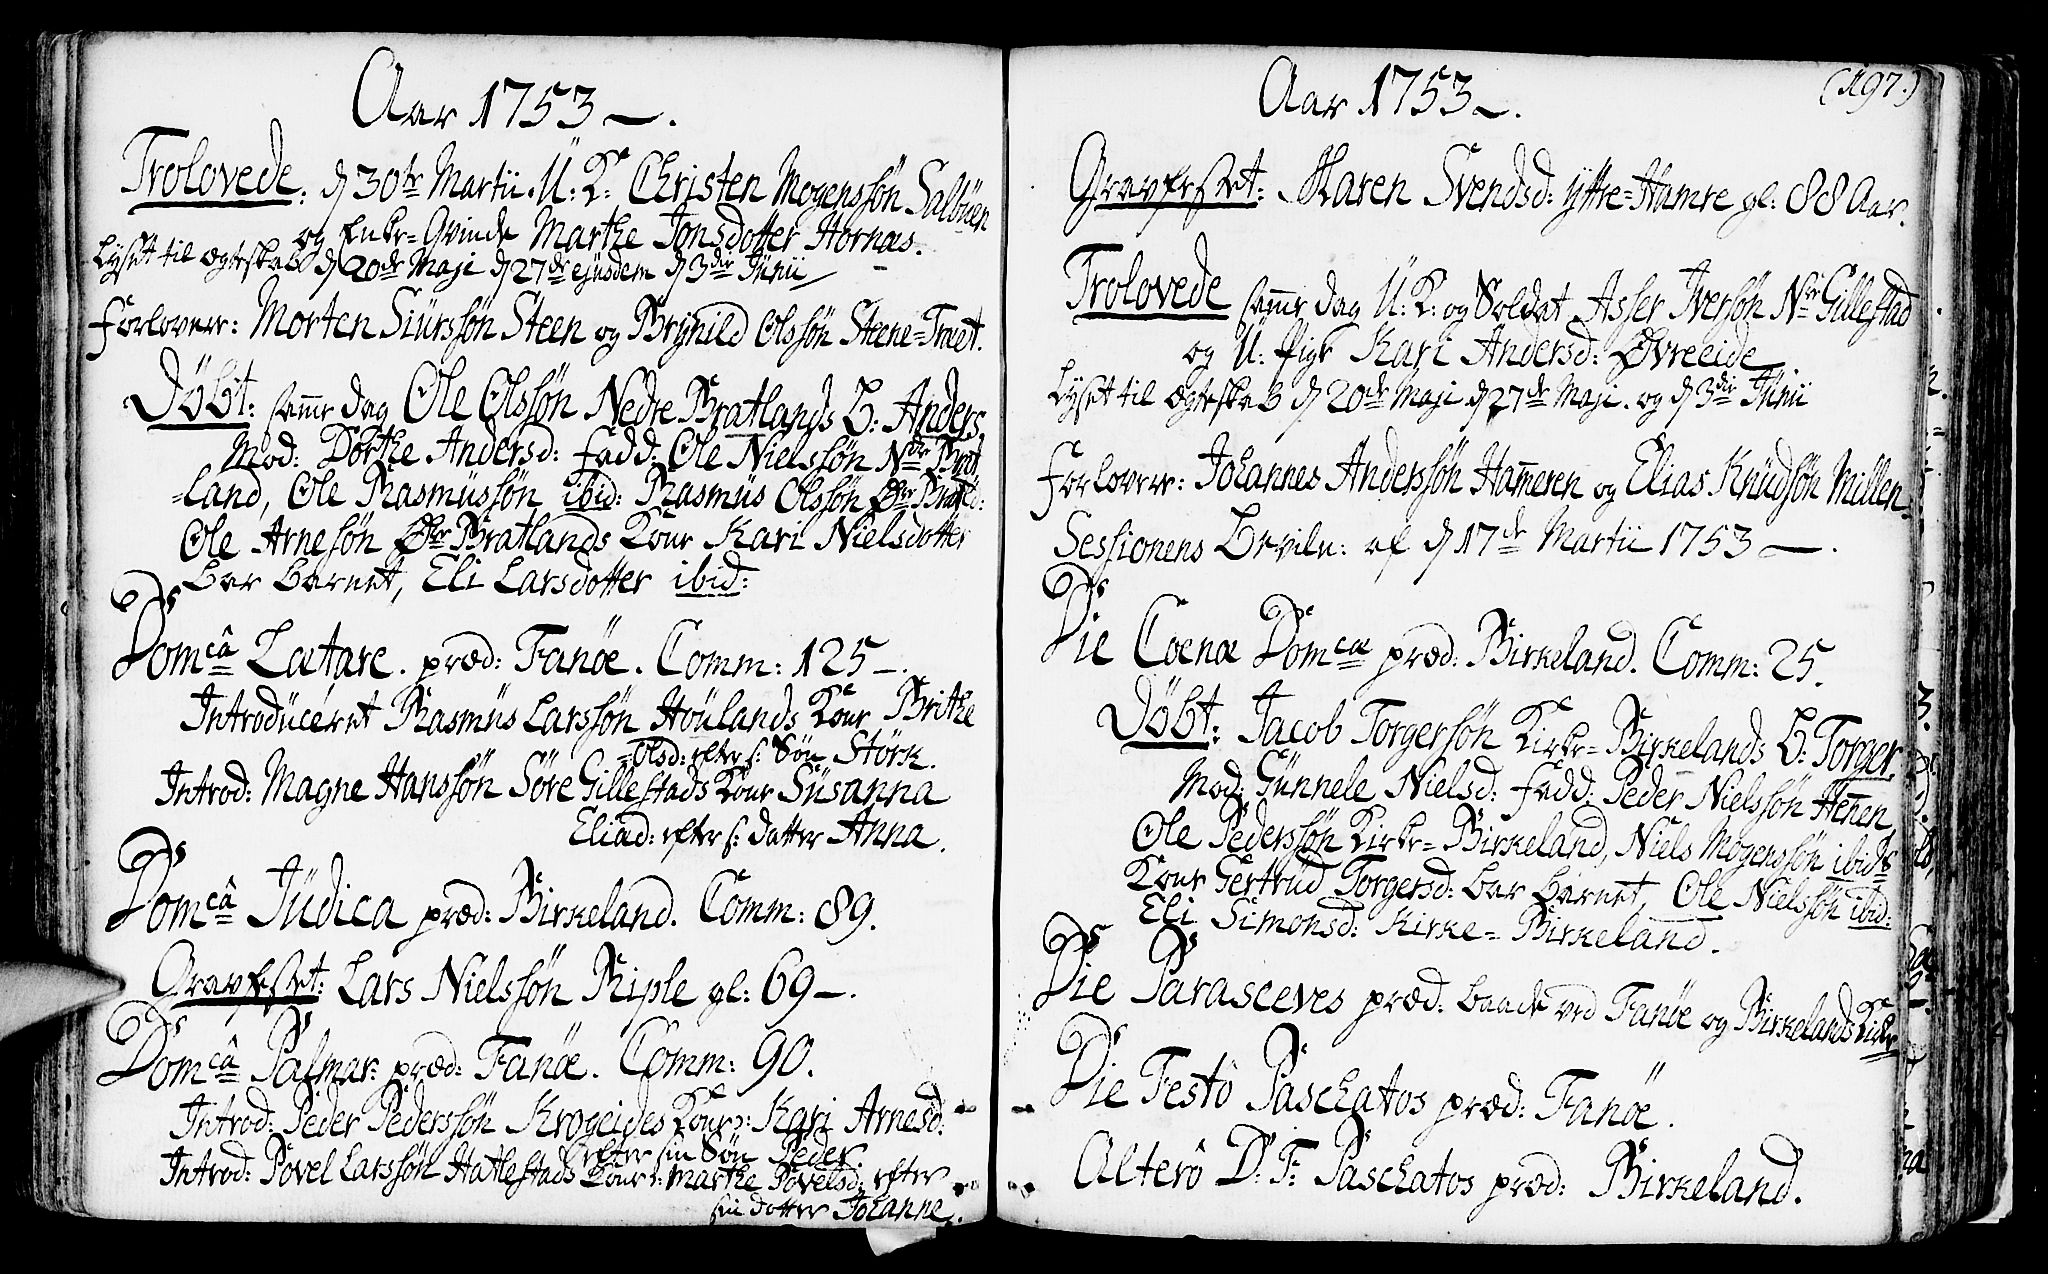 Aar 1753 —.
Trolovede. d 30te Martii. U: K: Christen Mogenssøn Salbüen
og Enke-Qvinde Marthe Jonsdotter Hornæs.
Lyset til Ægteskab d 20de Maji d 27de ejusdem d 3die Junii
Forlovere: Morten Siürssøn Steen og Brynild Olssøn Steene-Træet.
Döbt: samme dag Ole Olssøn Nedre Bratlands b: Anders
Mod: Dorthe Andersd: Fadd: Ole Nielssøn Ndr Brat
-land, Ole Rasmüssøn ibid: Rasmüs Olssøn Øvr Bratld:
Ole Arnesøn Øvr Bratlands Kone Kari Nielsdotter
bar barnet, Eli Larsdotter ibid:
Domcâ Lætare. præd: Fanöe. Comm: 125 —.
Introdüceret Rasmüs Larssøn Höülands Kone Brithe
=Olsd: efter s: Søn Störk.
Introd: Magne Hanssøn Söre Gillestads Kone Süsanna
Eliad: efter s: datter Anna.
Domcâ Jüdica præd: Birkeland. Comm: 89.
Gravfæstet: Lars Nielssøn Riple gl: 69 —.
Domcâ Palmar: præd: Fanöe. Comm: 90.
Introd: Peder Pederssøn Krogeides Kone: Kari Arnesd:
efter sin Søn Peder.
Introd: Povel Larssøn Hatlestads Kone: Marthe Povelsd: efter
sin datter Johanne.
Aar 1753 —.
(197.)
Gravfæstet: Maren Svendsd: Yttre-Hamre gl: 88 Aar.
Trolovede samme dag U: K: og Soldat Asser Iversøn Nre Gillestad
og U: Pige Kari Andersd: Øvreeide
Lyset til Ægteskab d 20de Maji d 27de Maji. og d 3die Junii
Forlovere: Johannes Anderssøn Ham̅eren og Elias Knüdsøn Millen.
Sessionens beviln: af d 17de Martii 1753 —.
Die Coenæ Domcæ præd: Birkeland. Comm: 25.
Döbt: Jacob Torgersøn Kirke-Birkelands b: Torger.
Mod: Günnele Nielsd: Fadd: Peder Nielssøn Hen̅en,
Ole Pederssøn Kirke-Birkeland, Niels Mogenssøn ibids
Kone Gertrüd Torgersd: bar barnet, Ole Nielssøn ibid:
Eli Simonsd: Kirke-Birkeland.
Die Parasceves præd: baade ved Fanöe og Birkelands Kirke
Die Festô Paschatos præd: Fanöe.
Alterô D: F: Paschatos præd: Birkeland.